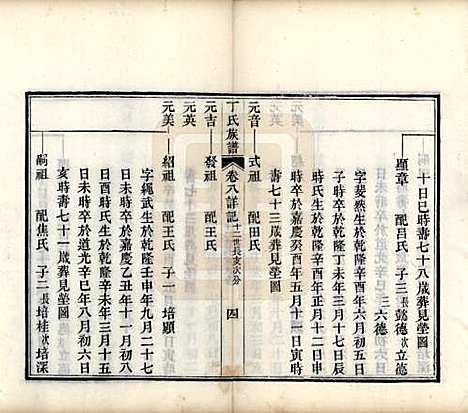 嗣祖
十日巳時壽七十八歲葬見塋圖
顯章 配呂氏 子三 長懿德 次立德 三六德
字斐然生於乾隆辛酉年六月初五日
子時卒於乾隆丁未年三月十七日辰
時氏生於乾隆辛酉年正月十三日午
時卒於嘉慶癸酉年五月十一日寅時
壽七十三歲葬見塋圖
元音 式祖 配田氏
丁氏族譜 卷八詳記 十二世 四
元吉 發祖 配王氏
元英
元美 紹祖 配王氏 子一 培顯
字繩武生於乾隆壬申年九月二十七
日未時卒於嘉慶乙亥年十一月初八
日未時氏生於乾隆辛未年三月十五
日未時卒於道光辛巳年八月初六日
亥時壽七十一歲葬見塋圖
嗣祖 配焦氏 子二 長培桂 次培深